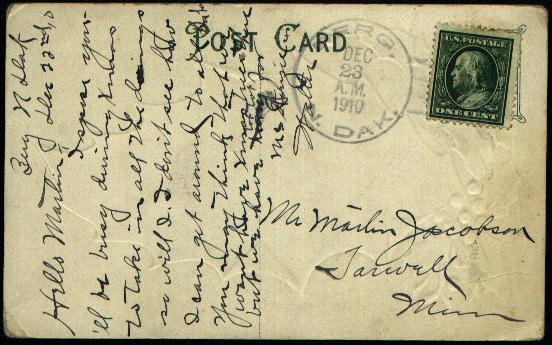 POST CARD
BERG.
DEC
23
A.M.
1910
N. DAK.
U.S. POSTAGE
ONE CENT
Berg N Dak
Dec 22nd 10
Hello Martin!
I spose you
'll be busy during Xmas
to take in all the doings
so will I. I don't see how
I can get around to all
You may think that
I wont
but we have
Mr Martin Jacobson
Farwell
Minn